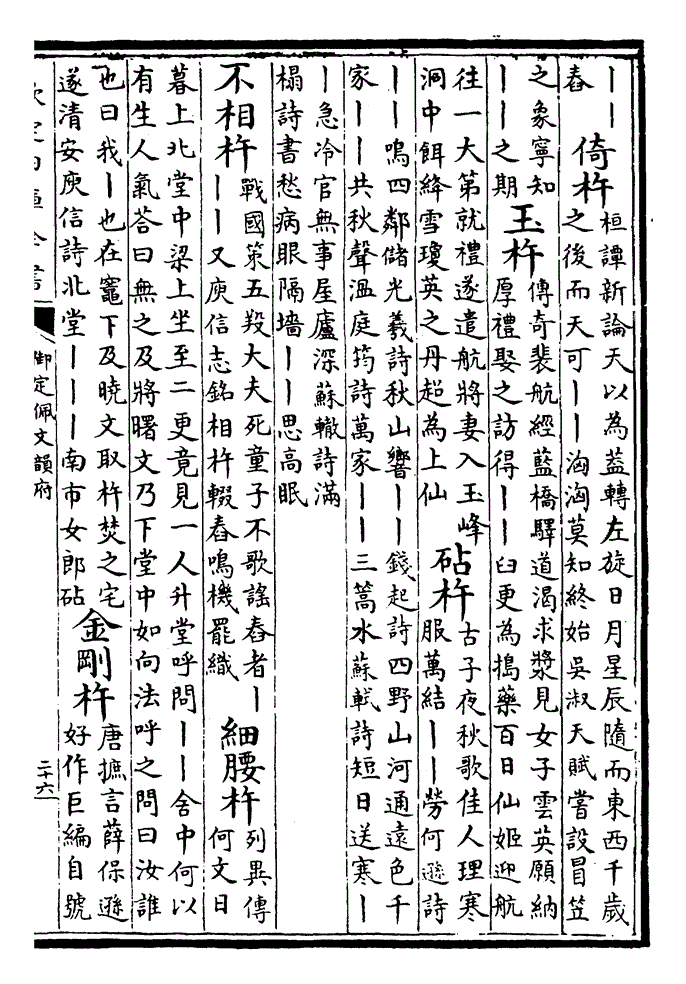 丨丨
舂
倚杵
桓譚新論天以為蓋轉左旋日月星辰隨而東西千歲
之後而天可丨丨洶洶莫知終始吳淑天賦嘗設冒笠
之象寧知
丨丨之期
玉杵
傳奇裴航經藍橋驛道渴求漿見女子雲英願納
厚禮娶之訪得丨丨臼更為搗藥百日仙姬迎航
往一大第就禮遂遣航將妻入玉峰
洞中餌絳雪瓊英之丹超為上仙
砧杵
古子夜秋歌佳人理寒
服萬結丨丨勞何遜詩
丨丨鳴四鄰儲光羲詩秋山響丨丨錢起詩四野山河通遠色千
家丨丨共秋聲溫庭筠詩萬家丨丨三篙水蘇軾詩短日送寒丨
丨急冷官無事屋廬深蘇轍詩滿
榻詩書愁病眼隔墻丨丨思高眠
不相杵
戰國策五羖大夫死童子不歌謠舂者丨
丨丨又庾信志銘相杵輟舂鳴機罷織
細腰杵
列異傳
何文日
暮上北堂中梁上坐至二更竟見一人升堂呼問丨丨舍中何以
有生人氣答曰無之及將曙文乃下堂中如向法呼之問曰汝誰
也曰我丨也在竈下及曉文取杵焚之宅
遂清安庾信詩北堂丨丨丨南市女郎砧
金剛杵
唐摭言薛保遜
好作巨編自號
欽定四庫全書
御定佩文韻府
二十六